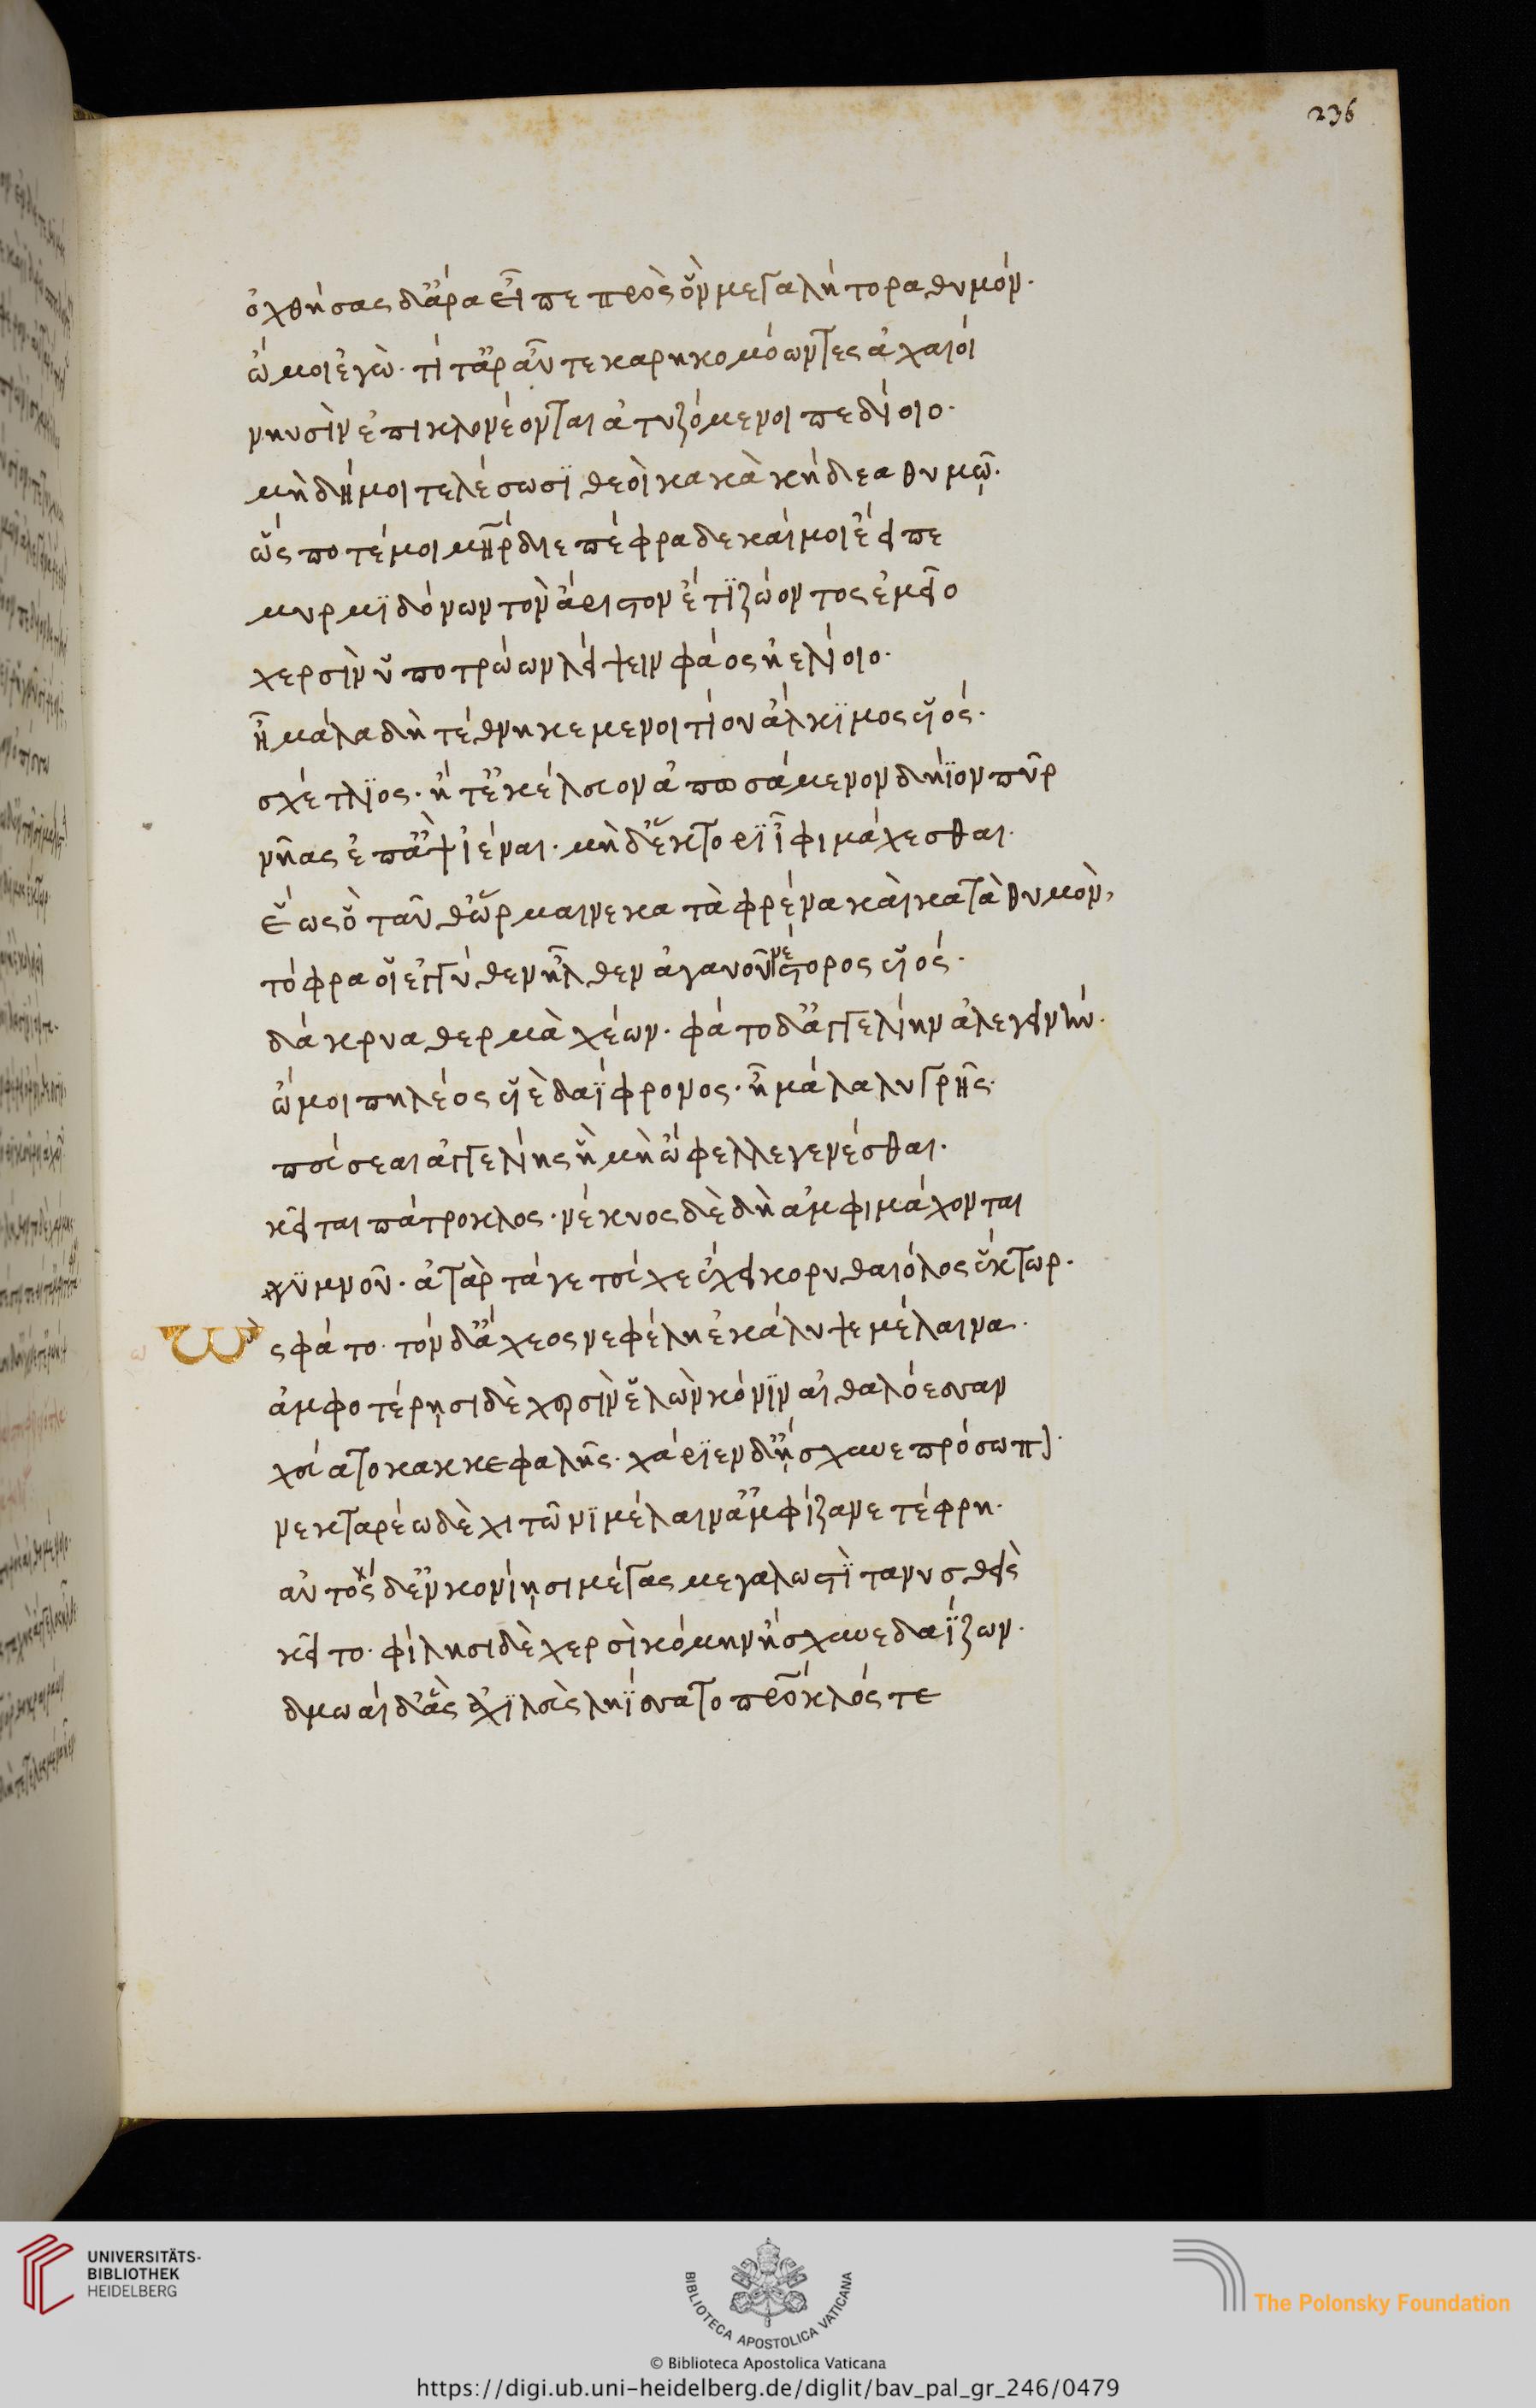 236
ὀχθήσας δ' ἄρα εἶπε πρὸς ὃν μεγαλήτορα θυμόν·
ὤμοι ἐγὼ· τί τ' ἂρ αὖτε καρηκομόωντες ἀχαιοί
νηυσὶν ἐπικλονέονται ἀτυζόμενοι πεδίοιο·
μὴ δή μοι τελέσωσϊ θεοὶ κακὰ κήδεα θυμῷ·
ὥς ποτέ μοι μῆρ διεπέφραδε καί μοι ἔειπε
μυρμϊδόνων τὸν ἄριστον ἔτϊ ζώοντος ἐμεῖο
χερσὶν ὕπο τρώων λείψειν φάος ἠελίοιο·
ἦ μάλα δὴ τέθνηκε μενοιτίου ἄλκϊμος υἱός·
σχέτλϊος· ἦ τ' ἐκέλευον ἀπωσάμενον δήϊον πῦρ
νῆας ἐπ' ἂψ ἰέναι· μὴδ' ἕκτορϊ ἶφι μάχεσθαι·
ἕως ὃ ταῦθ' ὥρμαινε κατὰ φρένα καὶ κατὰ θυμὸν,
τόφρα οἱ ἐγγύθεν ἦλθεν ἀγαυοῦ νέστορος υἱός·
δάκρυα θερμὰ χέων· φάτο δ' ἀγγελίην ἀλεγεινήν·
ὤμοι πηλέος υἱὲ δαΐφρονος· ἦ μάλα λυγρῆς·
πεύσεαι ἀγγελίης ἣ μὴ ὤφελλε γενέσθαι·
κεῖται πάτροκλος· νέκυος δὲ δὴ ἀμφιμάχονται
γϋμνοῦ· ἀτὰρ τάγε τεύχε' ἔχει κορυθαιόλος ἕκτωρ·
ω Ὣς φάτο· τόν δ' ἄχεος νεφέλη ἐκάλυψε μέλαινα·
ἀμφοτέρῃσι δὲ χερσὶν ἑλὼν κόνϊν αἰθαλόεσσαν
χεύατο κακκεφαλῆς· χάρϊεν δ' ᾔσχυνε πρόσωπον·
νεκταρέω δὲ χιτῶνϊ μέλαιν' ἀμφίζανε τέφρη·
αὐτός δ' ἐν κονίῃσι μέγας μεγαλωστὶ τανυσθεὶς
κεῖτο· φίλησι δὲ χερσὶ κόμην ᾔσχυνε δαΐζων·
δμωαί δ' ἃς ἀχϊλεὺς ληΐσσατο πρόκλός τε
UNIVERSITÄTS-
BIBLIOTHEK
HEIDELBERG
BIBLIOTECA APOSTOLICA VATICANA
The Polonsky Foundation
© Biblioteca Apostolica Vaticana
https://digi.ub.uni-heidelberg.de/diglit/bav_pal_gr_246/0479